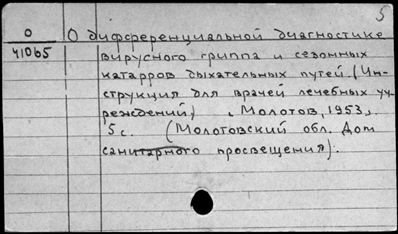 5
О
41065
О дифференциальной диагностике
вирусного гриппа и сезонных
катарров дыхательных путей. (Ин-
струкция для врачей лечебных уч-
реждений) Молотов, 1953.
5 с. (Молотовский обл. Дом
санитарного просвещения).